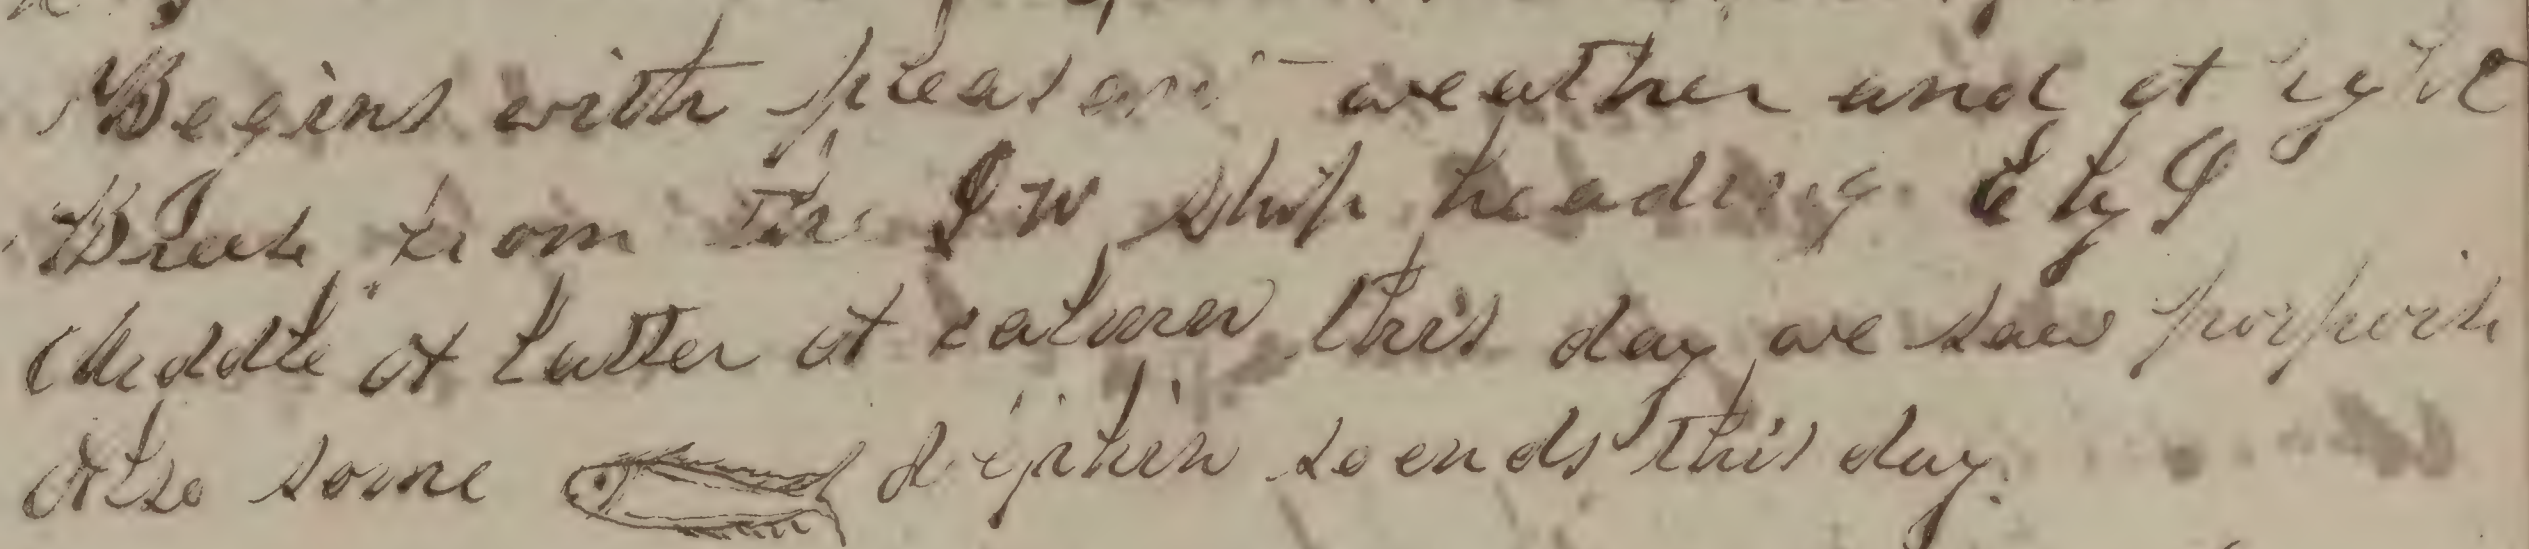 Begins with pleasant weather and at light
Breeze from the S W ship heading E by S
Middle & Latter at calmn this day we saw porpois
Also some dolphin so ends this day.